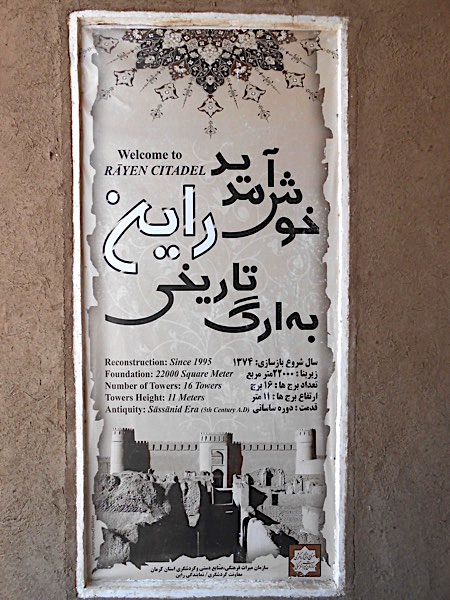 Welcome to
RĀYEN CITADEL
خوش آمدید
به ارگ
تاریخی
راین
Reconstruction: Since 1995
Foundation: 22000 Square Meter
Number of Towers: 16 Towers
Towers Height: 11 Meters
Antiquity: Sāssānid Era (5th Century A.D)
سال شروع بازسازی: ۱۳۷۴
زیربنا : ۲۲۰۰۰متر مربع
تعداد برج ها : ۱۶ برج
ارتفاع برج ها : ۱۱ متر
قدمت : دوره ساسانی
سازمان میراث فرهنگی،صنایع دستی وگردشگری استان کرمان
معاونت گردشگری / نمایندگی راین